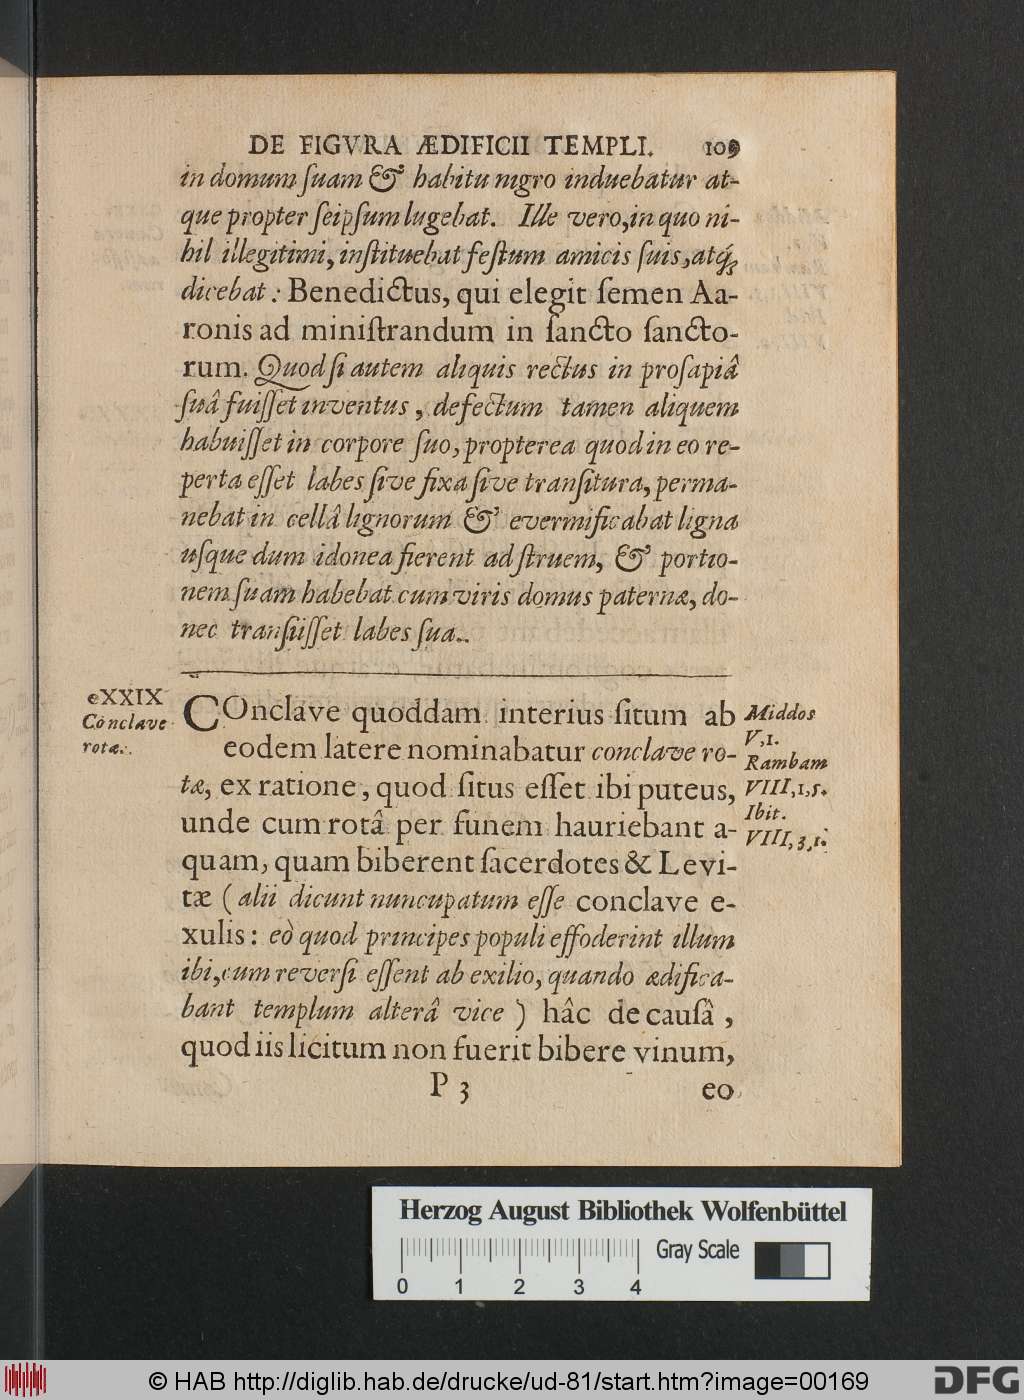 DE FIGVRA ÆDIFICII TEMPLI. 109
in domum ſuam & habitu nigro induebatur at-
que propter ſeipſum lugebat. Ille vero, in quo ni-
hil illegitimi, inſtituebat feſtum amicis ſuis, atq́;
dicebat: Benedictus, qui elegit ſemen Aa-
ronis ad miniſtrandum in ſancto ſancto-
rum. Quod ſi autem aliquis rectus in proſapiâ
ſuâ fuiſſet inventus, defectum tamen aliquem
habuiſſet in corpore ſuo, propterea quod in eo re-
perta eſſet labes ſive fixa ſive tranſitura, perma-
nebat in cellâ lignorum & evermificabat ligna
uſque dum idonea fierent ad ſtruem, & portio-
nem ſuam habebat cum viris domus paternæ, do-
nec tranſiiſſet labes ſua.
XXIX
Conclave
rotæ.
COnclave quoddam interius ſitum ab
eodem latere nominabatur conclave ro-
tæ, ex ratione, quod ſitus eſſet ibi puteus,
unde cum rotâ per funem hauriebant a-
quam, quam biberent ſacerdotes & Levi-
tæ (alii dicunt nuncupatum eſſe conclave e-
xulis: eò quod principes populi effoderint illum
ibi, cum reverſi eſſent ab exilio, quando ædifica-
bant templum alterâ vice) hâc de cauſâ,
quod iis licitum non fuerit bibere vinum,
Middos
V, 1.
Rambam
VIII, 1, 5.
Ibit.
VIII, 3, 1.
P 3 eo
Herzog August Bibliothek Wolfenbüttel
Gray Scale
0 1 2 3 4
© HAB http://diglib.hab.de/drucke/ud-81/start.htm?image=00169
DFG